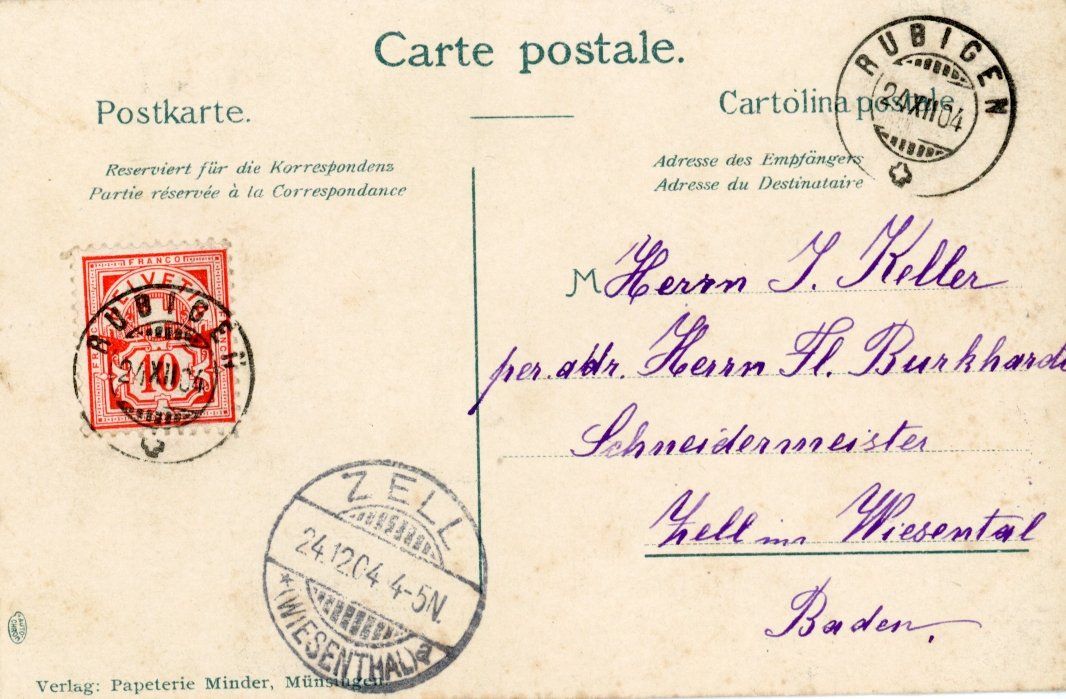 Carte postale.
Postkarte.
Cartolina postale.
Reserviert für die Korrespondenz
Partie réservée à la Correspondance
Adresse des Empfängers
Adresse du Destinataire
RUBIGEN
24 XII 04
FRANCO
HELVETIA
10
RUBIGEN
24 XII 04
M Herrn J. Keller
per. adr. Herrn Fl. Burkhardt
Schneidermeister
Zell im Wiesental
Baden.
ZELL
24.12.04. 4-5N.
* (WIESENTHAL) a
Verlag: Papeterie Minder, Münsingen.